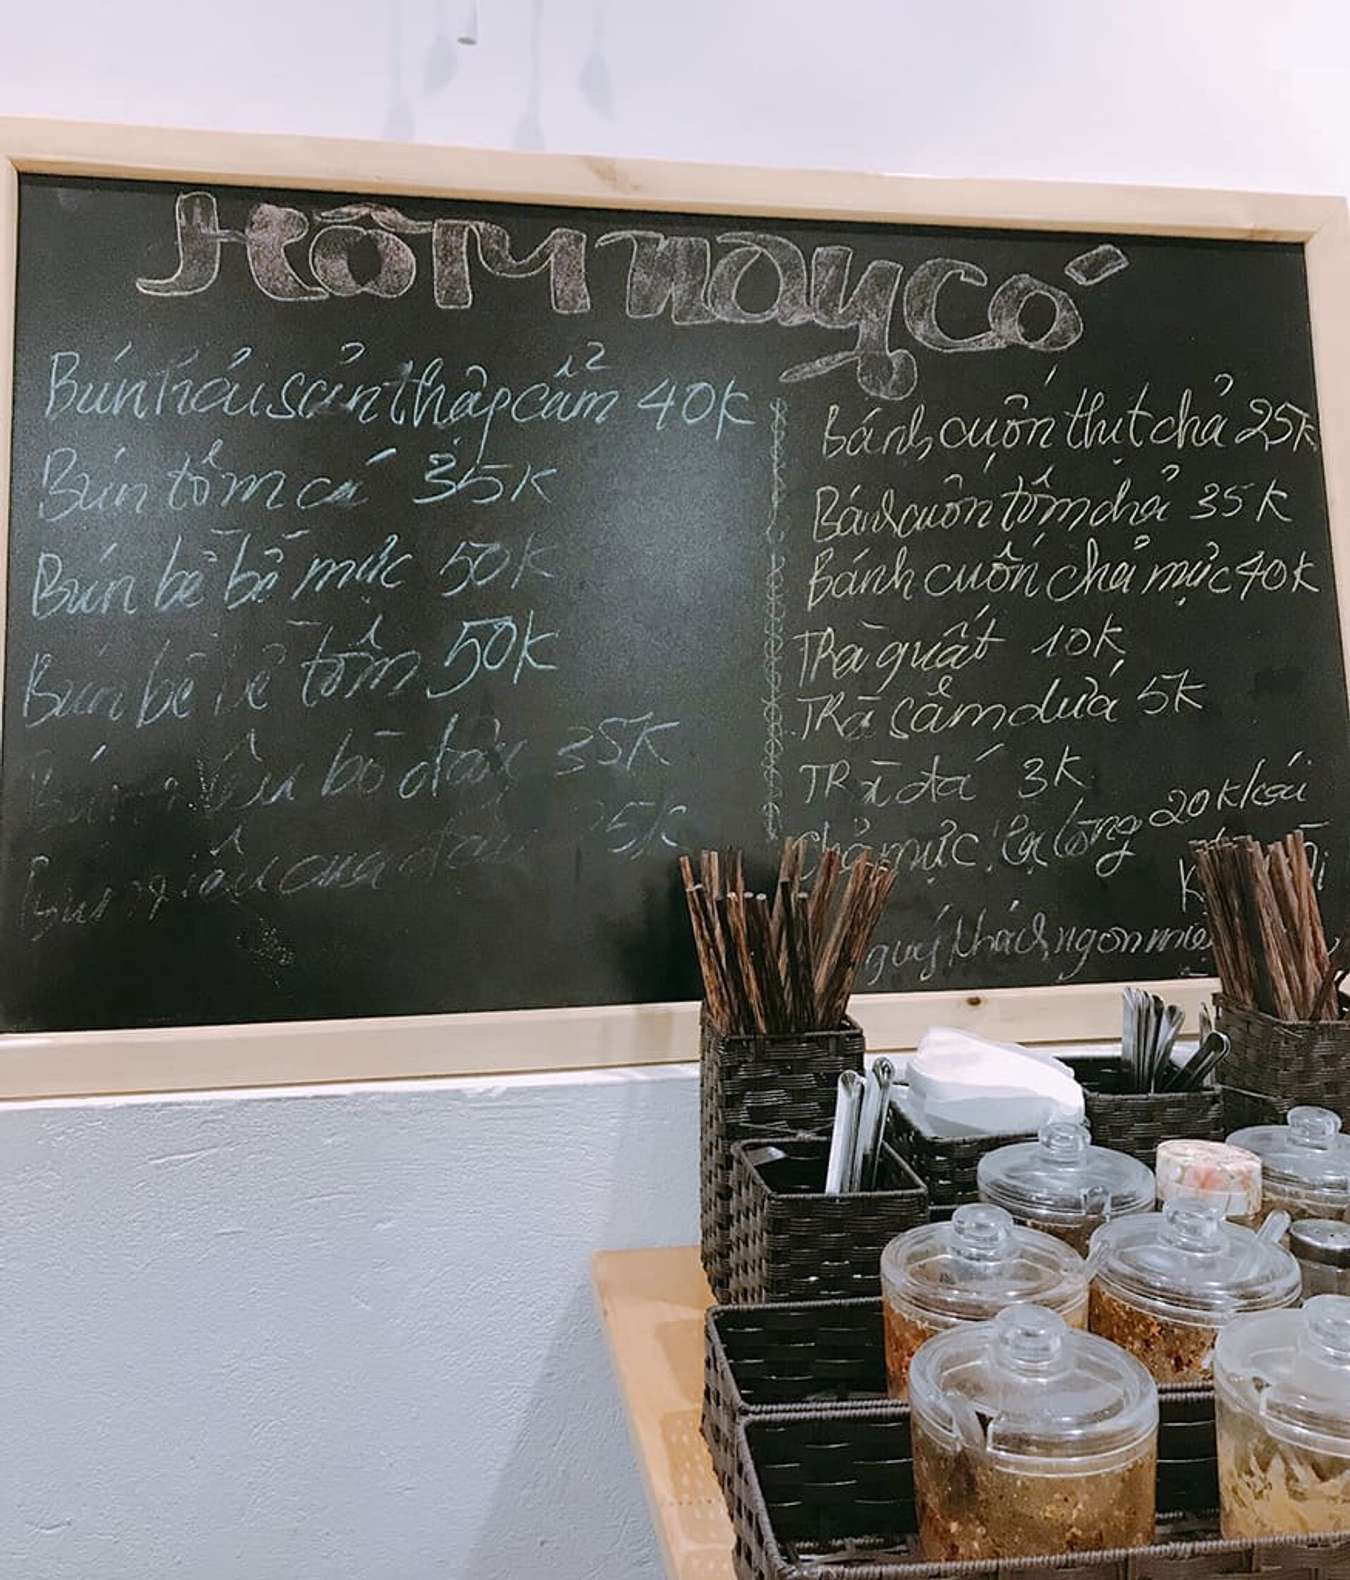 Hôm nay có
Bún hải sản thập cẩm 40k
Bún tôm cá 35k
Bún bề bề mực 50k
Bún bề bề tôm 50k
Bún riêu bò đậu 35k
Bún riêu cua đậu 5k
Bánh cuốn thịt chả 25k
Bánh cuốn tôm chả 35k
Bánh cuốn chả mực 40k
Trà quất 10k
Trà sâm dứa 5k
Trà đá 3k
Chả mực Hạ Long 20k/cái
quý khách ngon